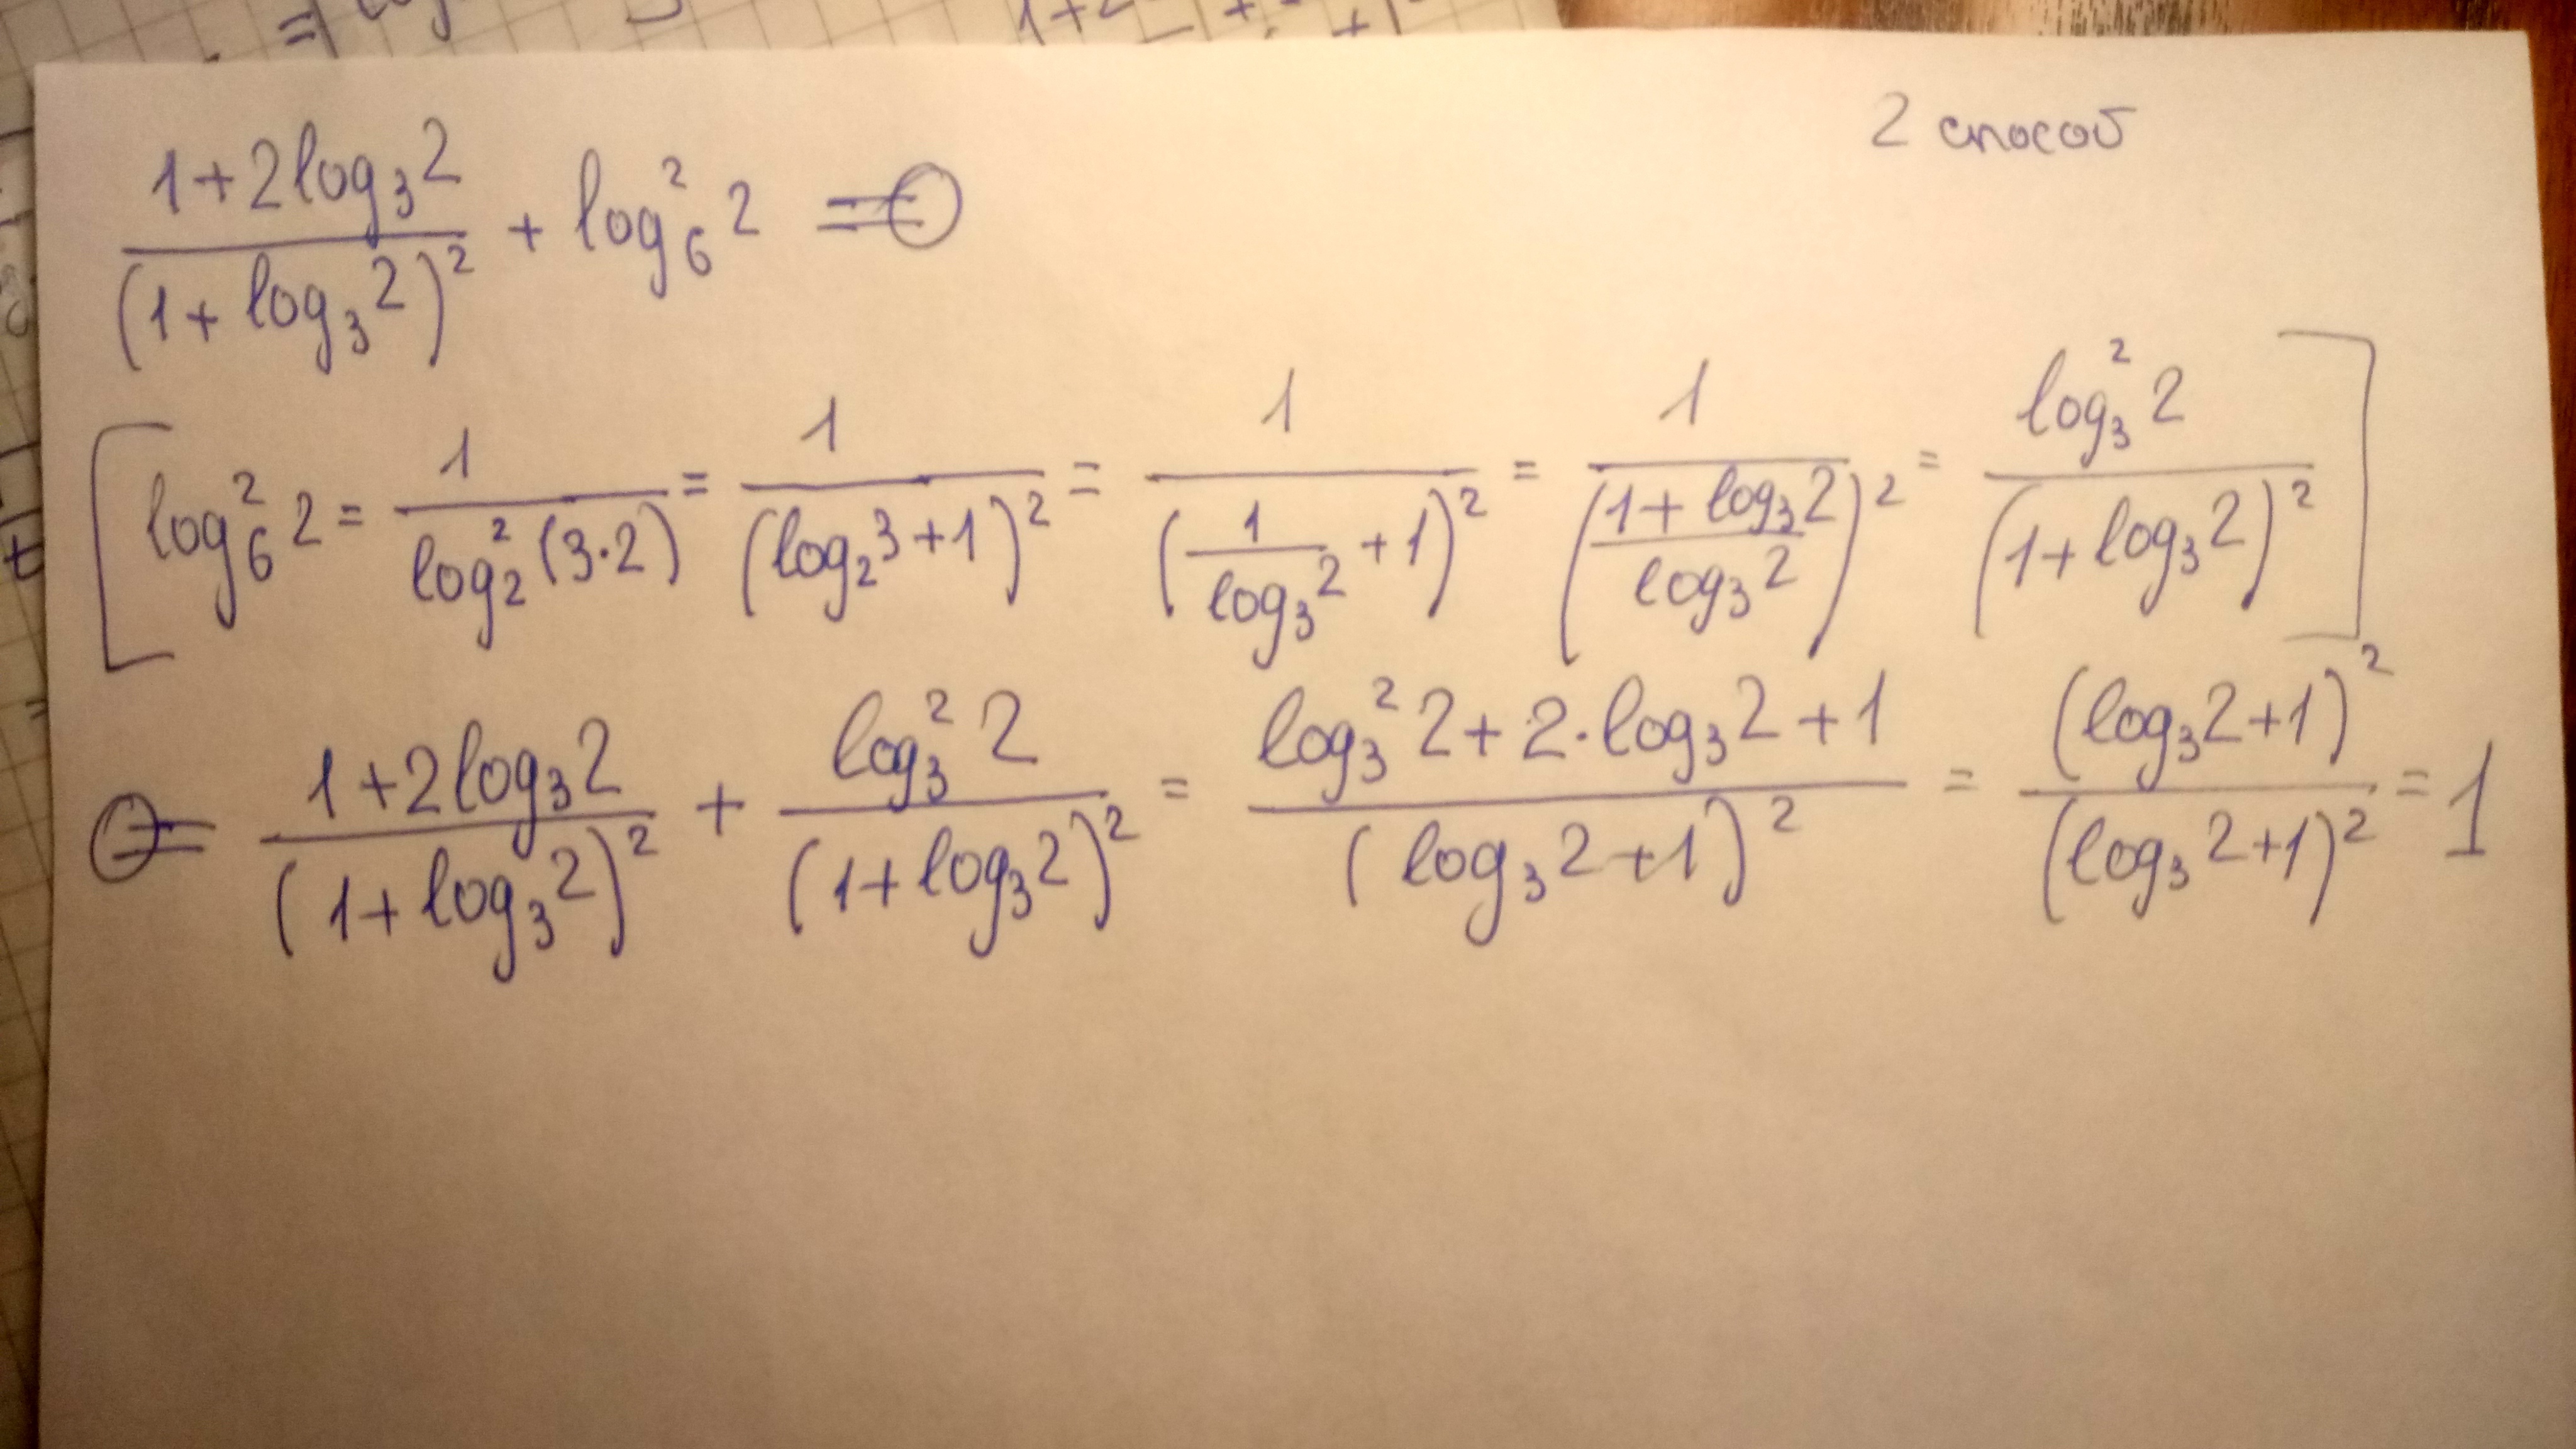 2 способ
(1+2log₃2)/(1+log₃2)² + log₆²2 =
[log₆²2 = 1/(log₂²(3·2)) = 1/(log₂3+1)² = 1/(1/(log₃2)+1)² = 1/((1+log₃2)/(log₃2))² = (log₃²2)/(1+log₃2)²]
= (1+2log₃2)/(1+log₃2)² + (log₃²2)/(1+log₃2)² = (log₃²2+2·log₃2+1)/(log₃2+1)² = (log₃2+1)²/(log₃2+1)² = 1